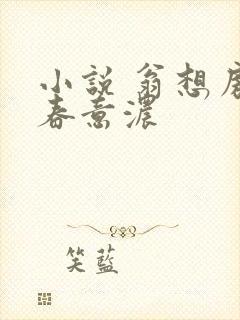 小說 翁想房
春意濃
笑藍